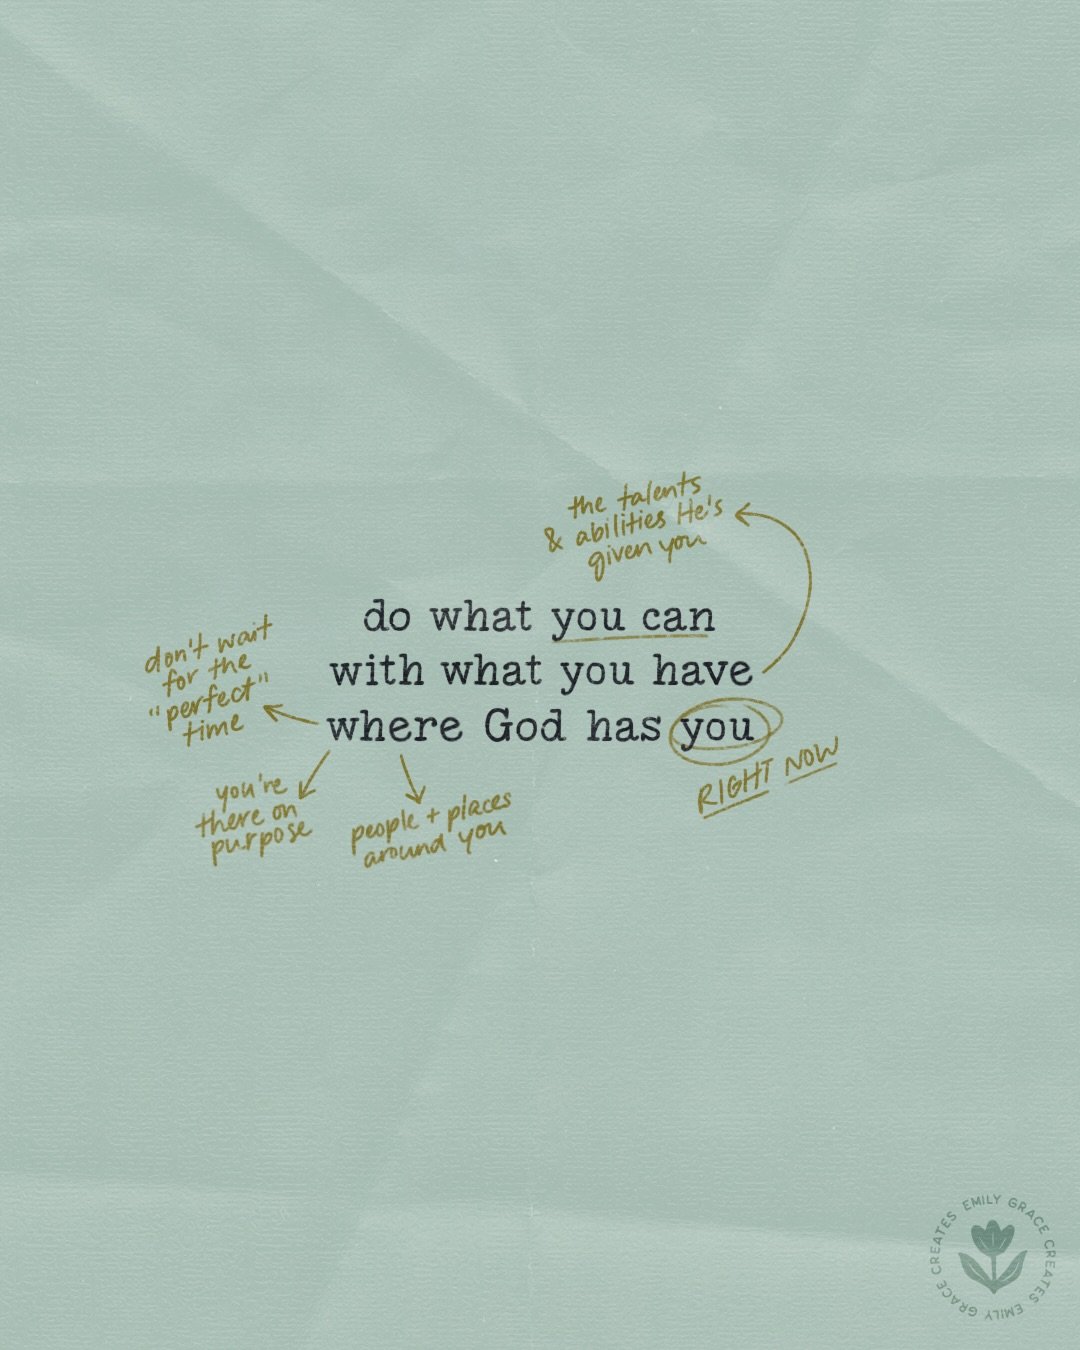 the talents
& abilities He's
given you
do what you can
with what you have
where God has you
don't wait
for the
"perfect"
time
you're
there on
purpose
people + places
around you
RIGHT NOW
EMILY GRACE CREATES EMILY GRACE CREATES